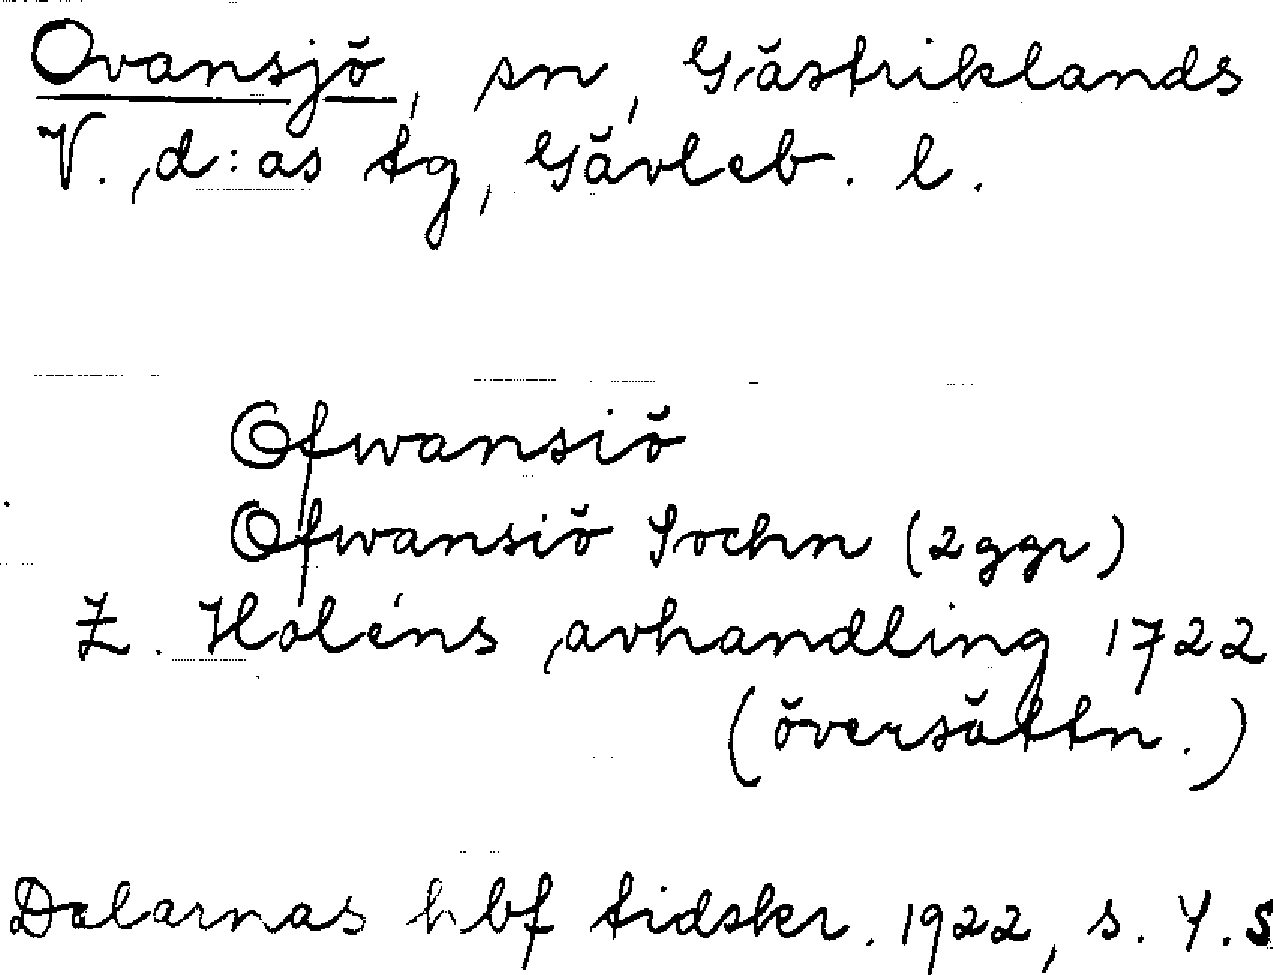 Ovansjö, sn, Gästriklands
V., d:as tg, Gävleb. l.
Ofwansiö
Ofwansiö Sochn (2ggr)
Z. Holéns avhandling 1722
(översättn.)
Dalarnas hbf tidskr. 1922, s.